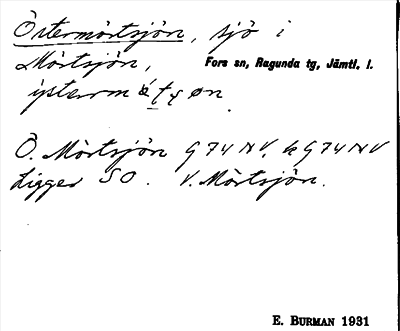 Östermörtsjön, sjö i
Mörtsjön, Fors sn, Ragunda tg, Jämtl. l.
Ö. Mörtsjön G 74 NV, k G 74 NV
Ligger SO. V. Mörtsjön.
E. BURMAN 1931